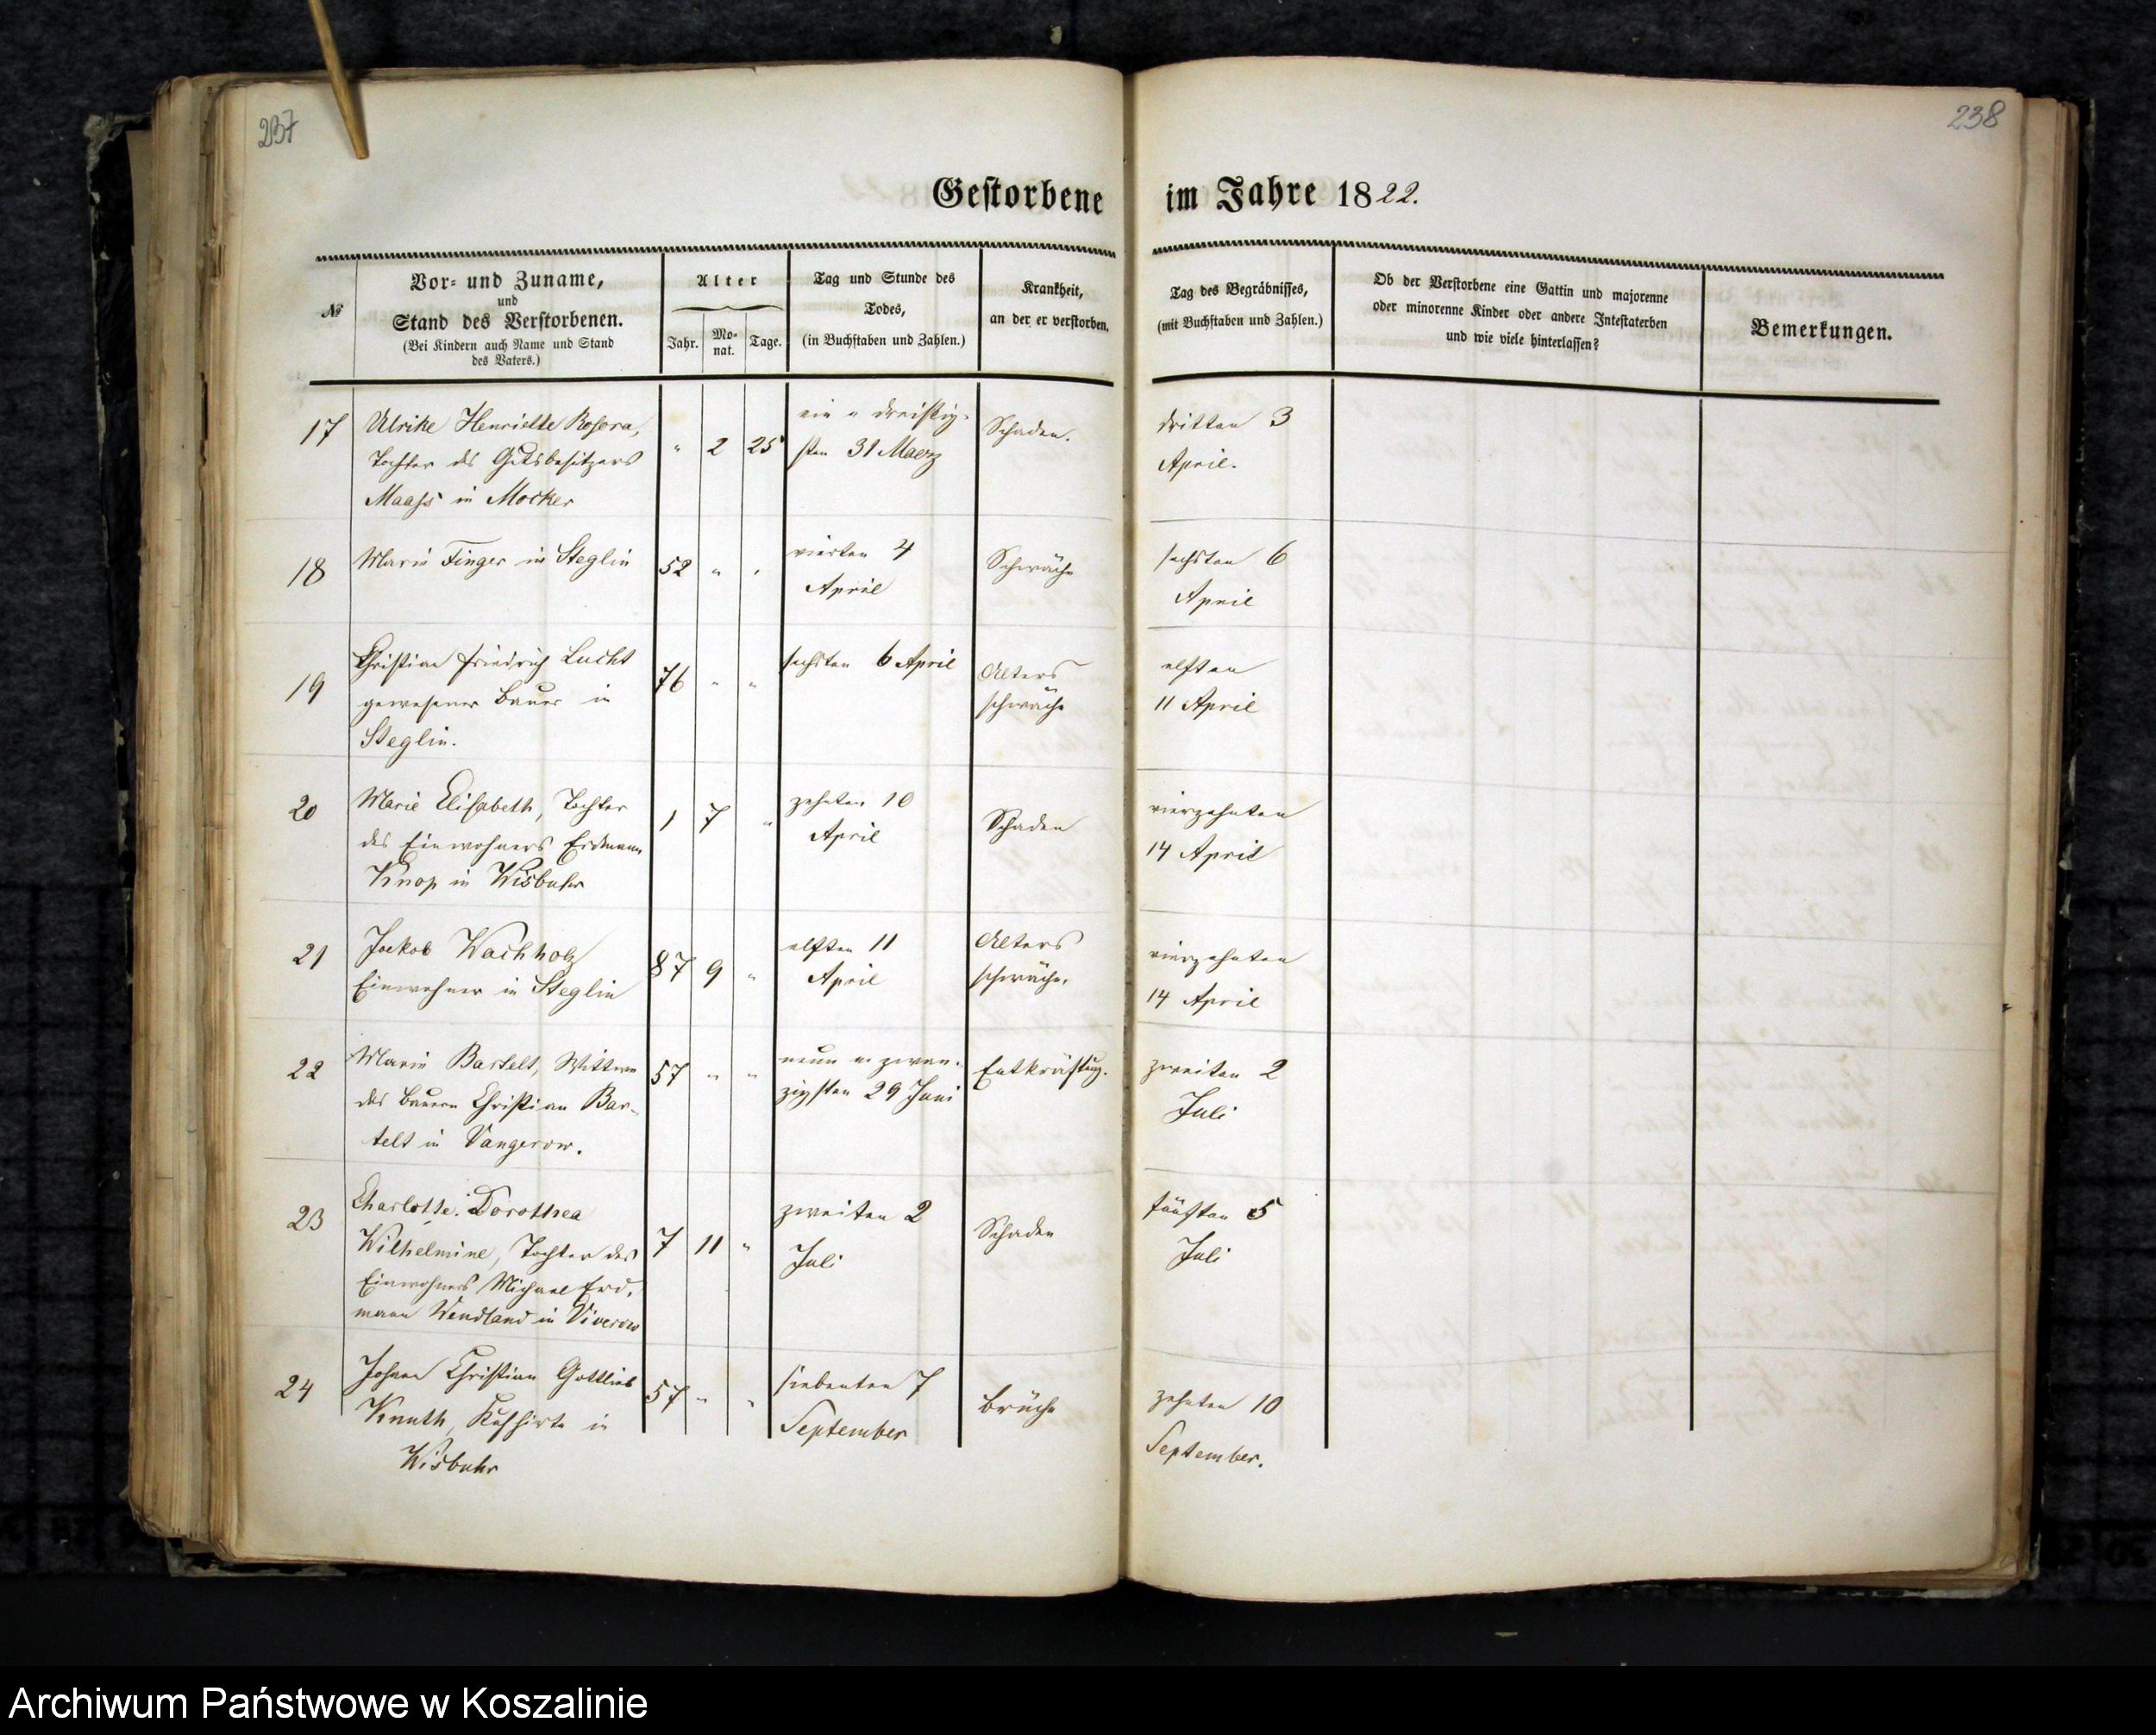 237
238
Gestorbene im Jahre 1822.
№
Vor- und Zuname,
und
Stand des Verstorbenen.
(Bei Kindern auch Name und Stand
des Vaters.)
Alter
Jahr.
Mo-
nat.
Tage.
Tag und Stunde des
Todes,
(in Buchstaben und Zahlen.)
Krankheit,
an der er verstorben.
Tag des Begräbnisses,
(mit Buchstaben und Zahlen.)
Ob der Verstorbene eine Gattin und majorenne
oder minorenne Kinder oder andere Intestaterben
und wie viele hinterlassen?
Bemerkungen.
17
Ulrike Henriette Rosora,
Tochter des Gutsbesitzers
Maass in Mocker
" 2 25
ein u dreißig-
sten 31 Maerz
Schaden.
dritten 3
April.
18
Marie Finger in Steglin
52 " "
vierten 4
April
Schwäche
sechsten 6
April
19
Christian Friedrich Lucht
gewesener Bauer in
Steglin.
76 " "
sechsten 6 April
Alters
schwäche
elften
11 April
20
Marie Elisabeth, Tochter
des Einwohners Erdmann
Knop in Wisbuhr
1 7 "
zehnten 10
April
Schaden
vierzehnten
14 April
21
Jackob Wachholz
Einwohner in Steglin
87 9 "
elften 11
April
Alters
schwäche.
vierzehnten
14 April
22
Marie Bartelt, Wittwe
des Bauern Christian Bar-
telt in Vangerow.
57 " "
neun u zwan-
zigsten 29 Juni
Entkräftung.
zweiten 2
Juli
23
Charlotte Dorothea
Wilhelmine, Tochter des
Einwohners Michael Erd-
mann Wendland in Viverow
7 11 "
zweiten 2
Juli
Schaden
fünften 5
Juli
24
Johann Christian Gottlieb
Knuth, Kuhhirte in
Wisbuhr
57 " "
siebenten 7
September
Brüche
zehnten 10
September.
Archiwum Państwowe w Koszalinie